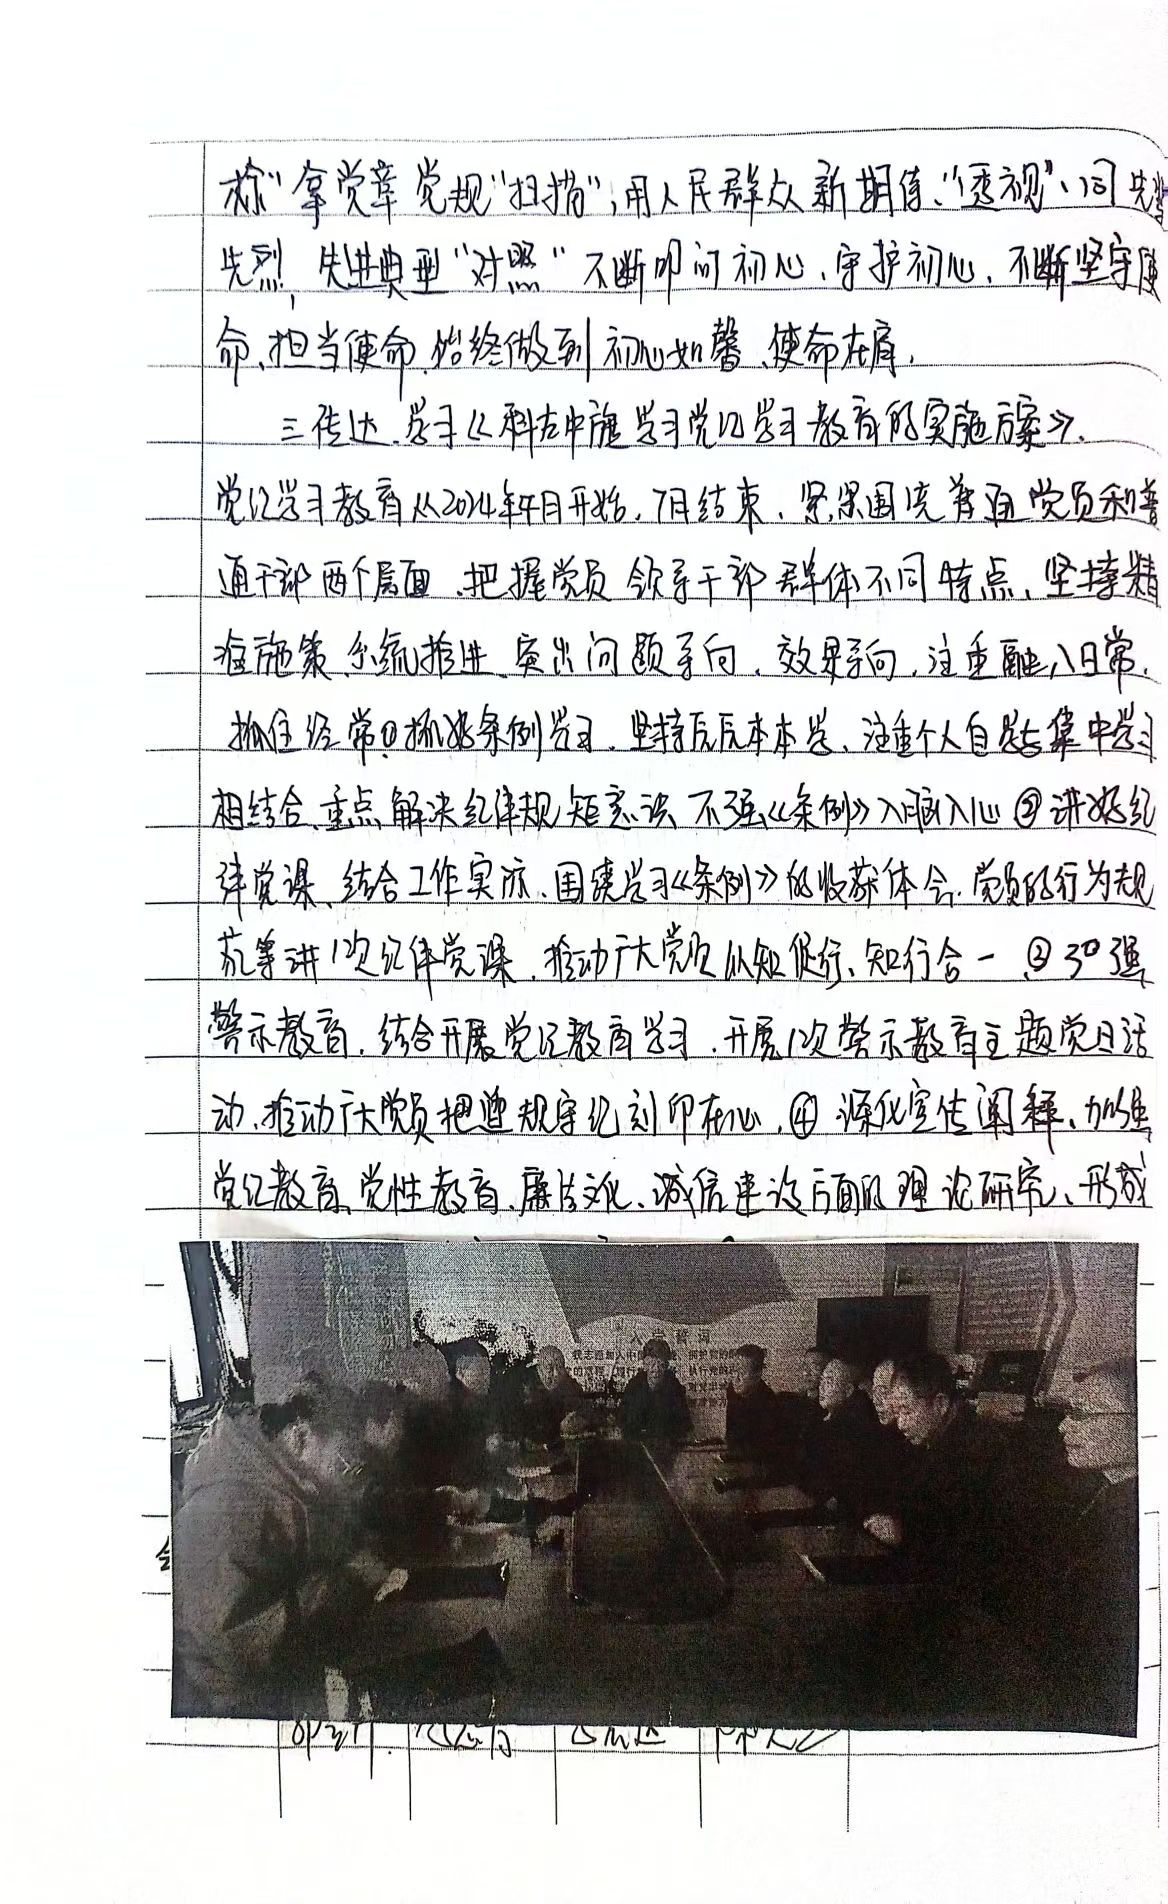 标"拿党章党规"扫描",用人民群众新期待"透视"、同先辈
先烈,先进典型"对照"不断叩问初心、守护初心,不断坚守使
命、担当使命,始终做到初心如馨、使命在肩.
三传达、学习《科左中旗学习党纪学习教育的实施方案》.
党纪学习教育从2024年4月开始,7月结束、紧紧围绕普通党员和普
通干部两个层面、把握党员领导干部群体不同特点、坚持精
准施策、系统推进、突出问题导向、效果导向,注重融入日常、
抓住经常①抓好条例学习、坚持原原本本学、注重个人自学与集中学习
相结合、重点解决纪律规矩意识不强《条例》入脑入心②讲好纪
律党课、结合工作实际、围绕学习《条例》的收获体会、党员的行为规
范等讲1次纪律党课、推动广大党员以知促行、知行合一③加强
警示教育,结合开展党纪教育学习、开展1次警示教育主题党日活
动、推动广大党员把遵规守纪刻印在心、④深化宣传阐释、加强
党纪教育、党性教育、廉洁文化、诚信建设方面的理论研究、形成
入党誓词